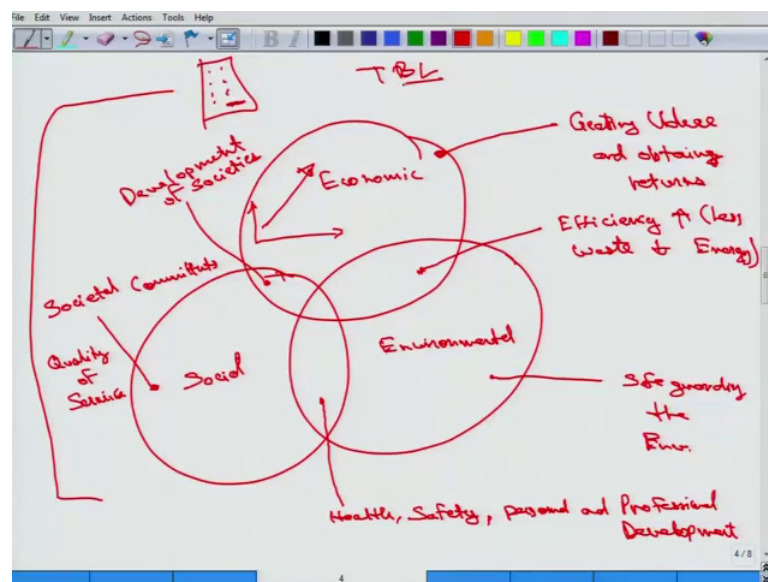 File Edit View Insert Actions Tools Help
B I
TBL
Development
of Societies
Economic
Creating Value
and obtaing
returns
Efficiency ↑ (less
waste & Energy)
Societal Committmts
Quality
of
Service
Social
Environmental
Safe guarding
the
Env.
Health, Safety, personal and Professional
Development
4/8
4